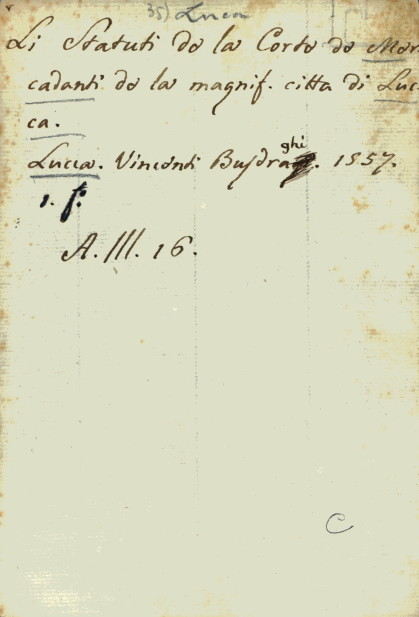 35) Lucca
Li Statuti de la Corte de Mer-
cadanti de la magnif. citta di Luc-
ca.
Lucca. Vincenti Busdraghi. 1557.
1. f.
A. III. 16.
C